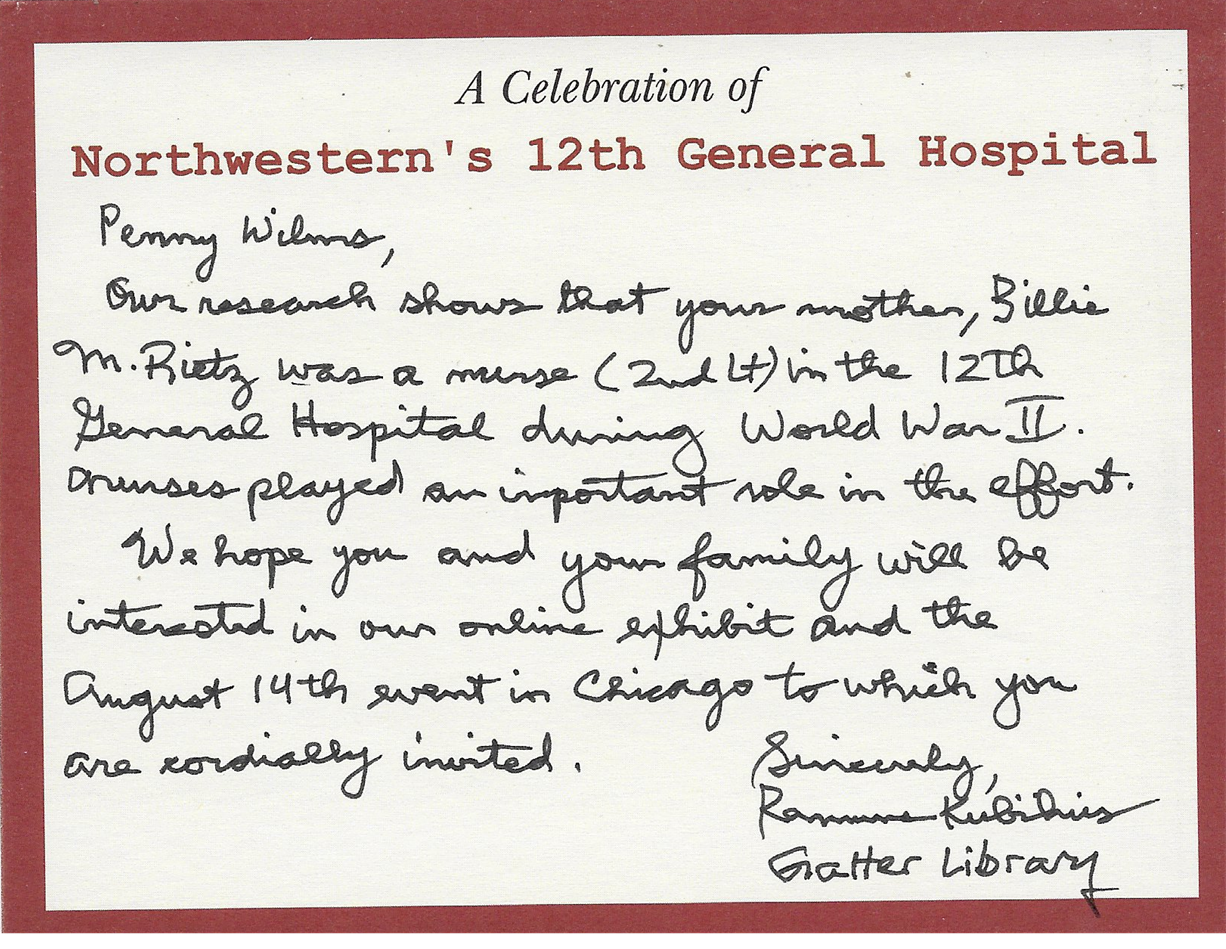 A Celebration of
Northwestern's 12th General Hospital
Penny Wilms,
Our research shows that your mother, Billie
M. Rietz was a nurse (2nd Lt) in the 12th
General Hospital during World War II.
Nurses played an important role in the effort.
We hope you and your family will be
interested in our online exhibit and the
August 14th event in Chicago to which you
are cordially invited.
Sincerely,
Ramune Kubilius
Galter Library